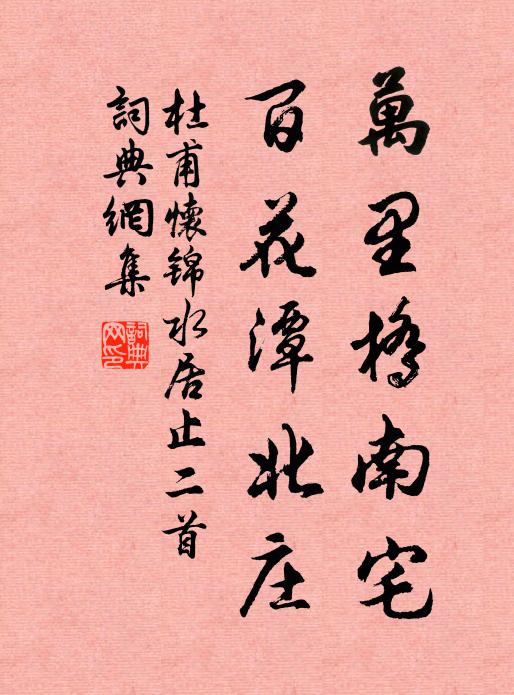 萬里橋南宅
百花潭北庄
杜甫懷锦水居止二首
詞典網集
詞典
网印